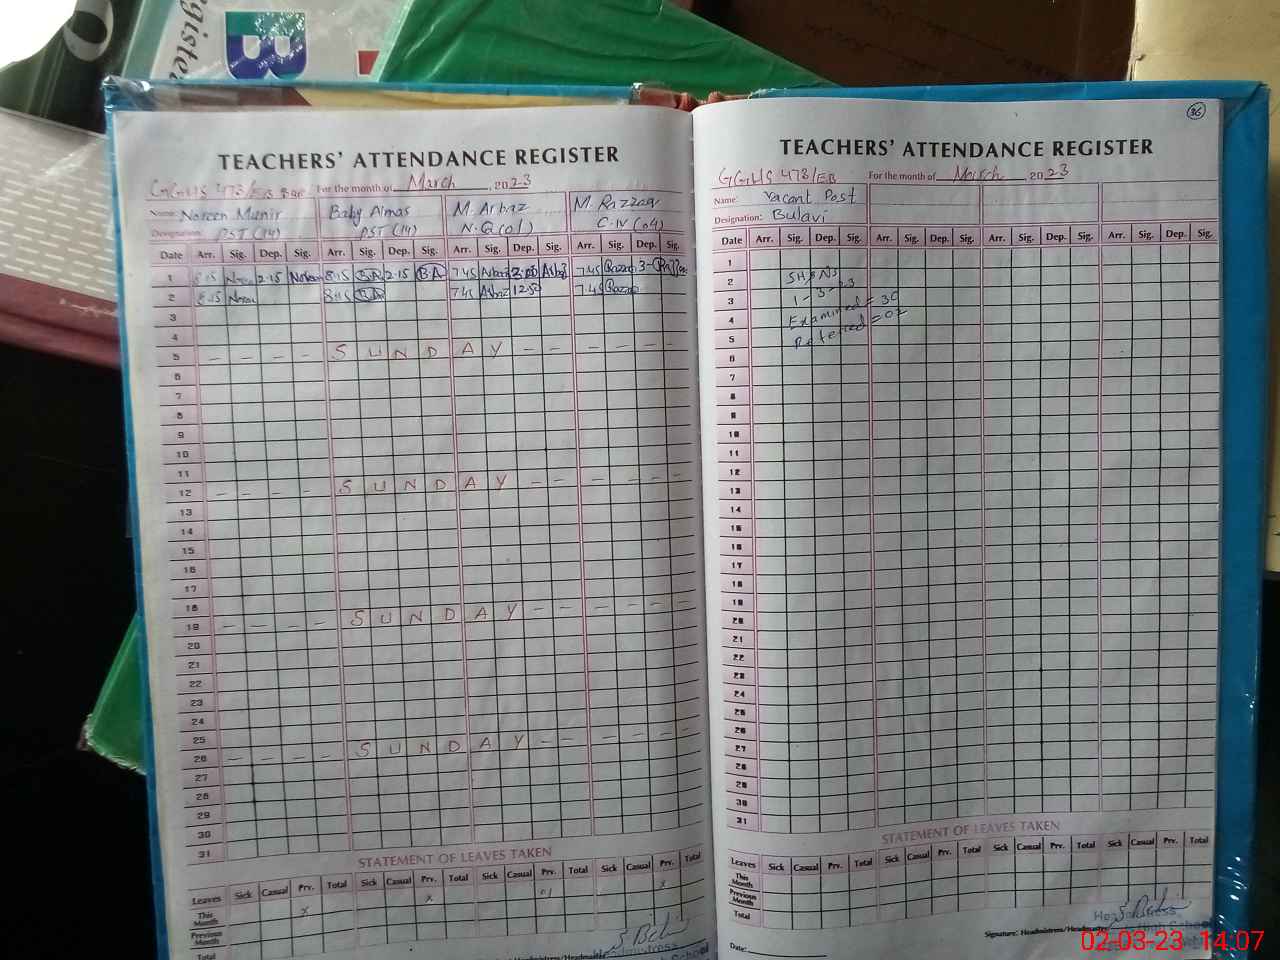 egister
B
TEACHERS' ATTENDANCE REGISTER
GGHS 478/EB For the month of March, 2023
Name: Noreen Munir Baby Almas M. Arbaz M. Razzaq
Designation: PST (14) PST (14) N.Q (01) C-IV (04)
Date Arr. Sig. Dep. Sig. Arr. Sig. Dep. Sig. Arr. Sig. Dep. Sig. Arr. Sig. Dep. Sig.
1 8:15 2:15 8:15 BA 2:15 BA 7:45 Arbaz Arbaz 7:45 Razzaq
2 8:15 8:15 BA 7:45 Arbaz 12:50 7:45 Razzaq
3
4
5 - - - - S U N D A Y - - - - - -
6
7
8
9
10
11
12 - - - - S U N D A Y - - - - - -
13
14
15
16
17
18
19 - - - - S U N D A Y - - - - - -
20
21
22
23
24
25
26 - - - - S U N D A Y - - - - - -
27
28
29
30
31
STATEMENT OF LEAVES TAKEN
Leaves Sick Casual Prv. Total Sick Casual Prv. Total Sick Casual Prv. Total Sick Casual Prv. Total
This Month x x 01 x
Previous Month
Total
Headmistress
36
TEACHERS' ATTENDANCE REGISTER
GGHS 478/EB For the month of March 2023
Name: Vacant Post
Designation: Bulavi
Date Arr. Sig. Dep. Sig. Arr. Sig. Dep. Sig. Arr. Sig. Dep. Sig. Arr. Sig. Dep. Sig.
1
2 SH&NS
3 1-3-23
4 Examined = 30
5 Refered = 02
6
7
8
9
10
11
12
13
14
15
16
17
18
19
20
21
22
23
24
25
26
27
28
29
30
31
STATEMENT OF LEAVES TAKEN
Leaves Sick Casual Prv. Total Sick Casual Prv. Total Sick Casual Prv. Total Sick Casual Prv. Total
This Month
Previous Month
Total
Headmistress
Signature: Headmistress/Headmaster High School
Date:
02-03-23 14:07